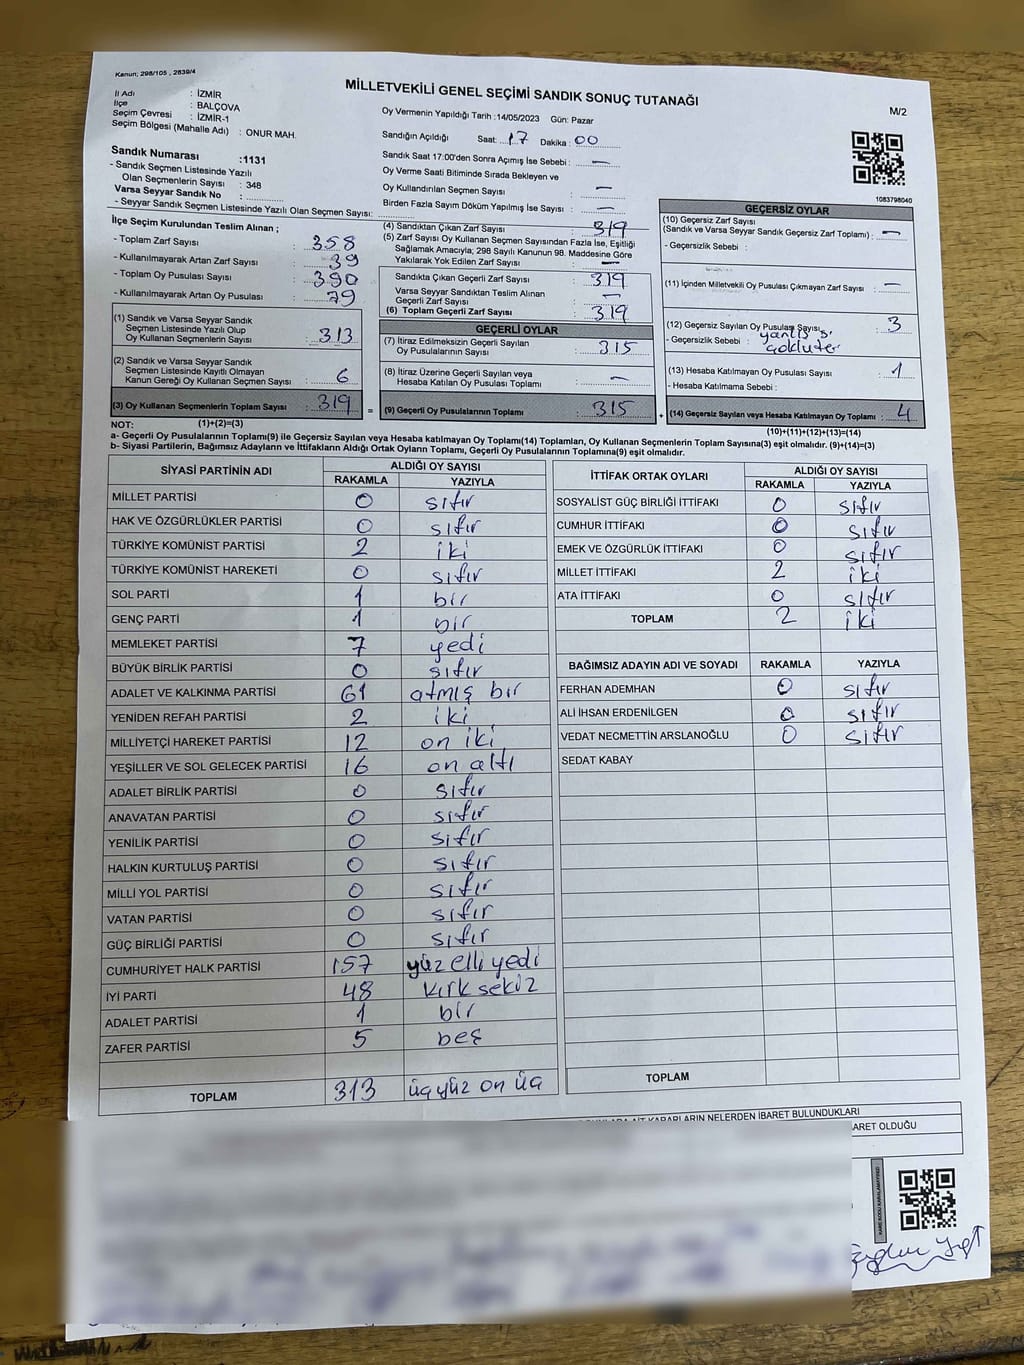 Kanun; 298/105 , 2839/4
MİLLETVEKİLİ GENEL SEÇİMİ SANDIK SONUÇ TUTANAĞI
M/2
İl Adı : İZMİR
İlçe : BALÇOVA
Seçim Çevresi : İZMİR-1
Seçim Bölgesi (Mahalle Adı) : ONUR MAH.
Sandık Numarası :1131
- Sandık Seçmen Listesinde Yazılı
Olan Seçmenlerin Sayısı : 348
Varsa Seyyar Sandık No :
- Seyyar Sandık Seçmen Listesinde Yazılı Olan Seçmen Sayısı:
Oy Vermenin Yapıldığı Tarih :14/05/2023 Gün: Pazar
Sandığın Açıldığı Saat: 17 Dakika : 00
Sandık Saat 17:00'den Sonra Açımış İse Sebebi : —
Oy Verme Saati Bitiminde Sırada Bekleyen ve
Oy Kullandırılan Seçmen Sayısı : —
Birden Fazla Sayım Döküm Yapılmış İse Sayısı : —
1083798040
İlçe Seçim Kurulundan Teslim Alınan ;
- Toplam Zarf Sayısı : 358
- Kullanılmayarak Artan Zarf Sayısı : 39
- Toplam Oy Pusulası Sayısı : 390
- Kullanılmayarak Artan Oy Pusulası : 79
(1) Sandık ve Varsa Seyyar Sandık
Seçmen Listesinde Yazılı Olup
Oy Kullanan Seçmenlerin Sayısı : 313
(2) Sandık ve Varsa Seyyar Sandık
Seçmen Listesinde Kayıtlı Olmayan
Kanun Gereği Oy Kullanan Seçmen Sayısı : 6
(3) Oy Kullanan Seçmenlerin Toplam Sayısı : 319
(4) Sandıktan Çıkan Zarf Sayısı : 319
(5) Zarf Sayısı Oy Kullanan Seçmen Sayısından Fazla İse, Eşitliği
Sağlamak Amacıyla; 298 Sayılı Kanunun 98. Maddesine Göre
Yakılarak Yok Edilen Zarf Sayısı : —
Sandıkta Çıkan Geçerli Zarf Sayısı : 319
Varsa Seyyar Sandıktan Teslim Alınan
Geçerli Zarf Sayısı : —
(6) Toplam Geçerli Zarf Sayısı : 319
GEÇERLİ OYLAR
(7) İtiraz Edilmeksizin Geçerli Sayılan
Oy Pusulalarının Sayısı : 315
(8) İtiraz Üzerine Geçerli Sayılan veya
Hesaba Katılan Oy Pusulası Toplamı : —
= (9) Geçerli Oy Pusulalarının Toplamı : 315
GEÇERSİZ OYLAR
(10) Geçersiz Zarf Sayısı
(Sandık ve Varsa Seyyar Sandık Geçersiz Zarf Toplamı) : —
- Geçersizlik Sebebi :
(11) İçinden Milletvekili Oy Pusulası Çıkmayan Zarf Sayısı : —
(12) Geçersiz Sayılan Oy Pusulası Sayısı : 3
- Geçersizlik Sebebi : yanlış
(13) Hesaba Katılmayan Oy Pusulası Sayısı : 1
- Hesaba Katılmama Sebebi :
+ (14) Geçersiz Sayılan veya Hesaba Katılmayan Oy Toplamı : 4
NOT: (1)+(2)=(3)
(10)+(11)+(12)+(13)=(14)
a- Geçerli Oy Pusulalarının Toplamı(9) ile Geçersiz Sayılan veya Hesaba katılmayan Oy Toplamı(14) Toplamları, Oy Kullanan Seçmenlerin Toplam Sayısına(3) eşit olmalıdır. (9)+(14)=(3)
b- Siyasi Partilerin, Bağımsız Adayların ve İttifakların Aldığı Ortak Oyların Toplamı, Geçerli Oy Pusulalarının Toplamına(9) eşit olmalıdır.
SİYASİ PARTİNİN ADI ALDIĞI OY SAYISI
RAKAMLA YAZIYLA
MİLLET PARTİSİ 0 sıfır
HAK VE ÖZGÜRLÜKLER PARTİSİ 0 sıfır
TÜRKİYE KOMÜNİST PARTİSİ 2 iki
TÜRKİYE KOMÜNİST HAREKETİ 0 sıfır
SOL PARTİ 1 bir
GENÇ PARTİ 1 bir
MEMLEKET PARTİSİ 7 yedi
BÜYÜK BİRLİK PARTİSİ 0 sıfır
ADALET VE KALKINMA PARTİSİ 61 atmış bir
YENİDEN REFAH PARTİSİ 2 iki
MİLLİYETÇİ HAREKET PARTİSİ 12 on iki
YEŞİLLER VE SOL GELECEK PARTİSİ 16 on altı
ADALET BİRLİK PARTİSİ 0 sıfır
ANAVATAN PARTİSİ 0 sıfır
YENİLİK PARTİSİ 0 sıfır
HALKIN KURTULUŞ PARTİSİ 0 sıfır
MİLLİ YOL PARTİSİ 0 sıfır
VATAN PARTİSİ 0 sıfır
GÜÇ BİRLİĞİ PARTİSİ 0 sıfır
CUMHURİYET HALK PARTİSİ 157 yüz elli yedi
İYİ PARTİ 48 kırk sekiz
ADALET PARTİSİ 1 bir
ZAFER PARTİSİ 5 beş
TOPLAM 313 üçyüz on üç
İTTİFAK ORTAK OYLARI ALDIĞI OY SAYISI
RAKAMLA YAZIYLA
SOSYALİST GÜÇ BİRLİĞİ İTTİFAKI 0 sıfır
CUMHUR İTTİFAKI 0 sıfır
EMEK VE ÖZGÜRLÜK İTTİFAKI 0 sıfır
MİLLET İTTİFAKI 2 iki
ATA İTTİFAKI 0 sıfır
TOPLAM 2 iki
BAĞIMSIZ ADAYIN ADI VE SOYADI RAKAMLA YAZIYLA
FERHAN ADEMHAN 0 sıfır
ALİ İHSAN ERDENİLGEN 0 sıfır
VEDAT NECMETTİN ARSLANOĞLU 0 sıfır
SEDAT KABAY
TOPLAM
NELERDEN İBARET BULUNDUKLARI
BARET OLDUĞU